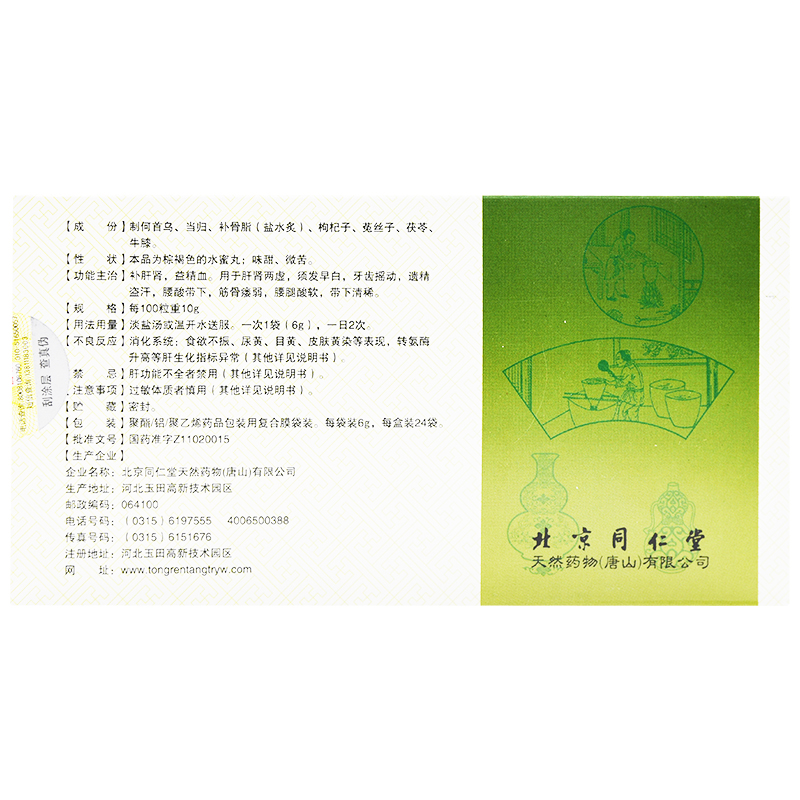 【成　份】制何首乌、当归、补骨脂（盐水炙）、枸杞子、菟丝子、茯苓、
牛膝。
【性　状】本品为棕褐色的水蜜丸；味甜、微苦。
【功能主治】补肝肾，益精血。用于肝肾两虚，须发早白，牙齿摇动，遗精
盗汗，腰酸带下，筋骨痿弱，腰腿酸软，带下清稀。
【规　格】每100粒重10g
【用法用量】淡盐汤或温开水送服。一次1袋（6g），一日2次。
【不良反应】消化系统：食欲不振、尿黄、目黄、皮肤黄染等表现，转氨酶
升高等肝生化指标异常（其他详见说明书）。
【禁　忌】肝功能不全者禁用（其他详见说明书）。
【注意事项】过敏体质者慎用（其他详见说明书）。
【贮　藏】密封。
【包　装】聚酯/铝/聚乙烯药品包装用复合膜袋装。每袋装6g，每盒装24袋。
【批准文号】国药准字Z11020015
【生产企业】
企业名称：北京同仁堂天然药物(唐山)有限公司
生产地址：河北玉田高新技术园区
邮政编码：064100
电话号码：（0315）6197555　4006500388
传真号码：（0315）6151676
注册地址：河北玉田高新技术园区
网　址：www.tongrentangtryw.com
刮涂层 查真伪
北京同仁堂
天然药物(唐山)有限公司